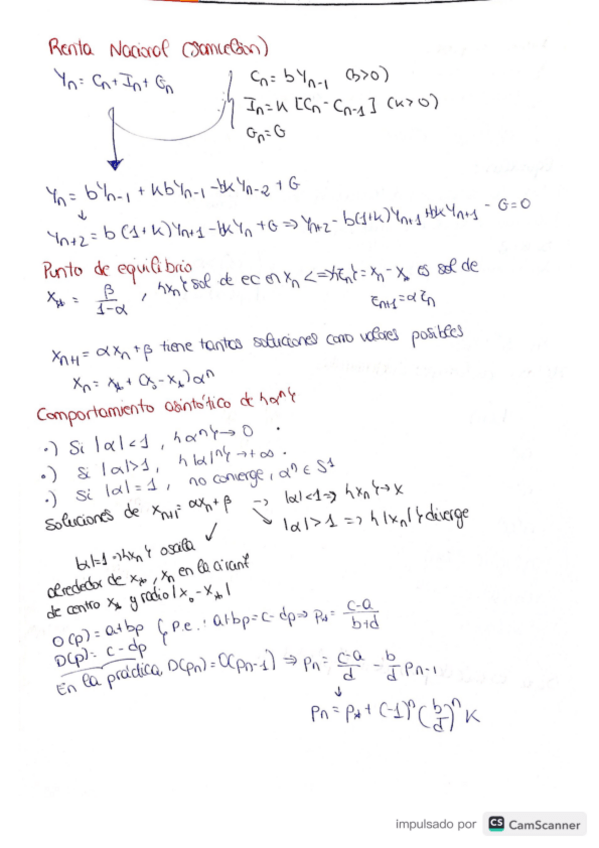 Renta Nacional (Samuelson)
Yn = Cn + In + Gn
Cn = bYn-1 (b>0)
In = k [Cn - Cn-1] (k>0)
Gn = G
Yn = bYn-1 + kbYn-1 - bkYn-2 + G
Yn+2 = b(1+k)Yn+1 - bkYn + G => Yn+2 - b(1+k)Yn+1 + bkYn+1 - G = 0
Punto de equilibrio
x* = β/(1-α), {xn} sol de ec en xn <=> {zn} = xn - x* es sol de
zn+1 = α zn
xn+1 = αxn + β tiene tantas soluciones como valores posibles
xn = x* + (x0 - x*)α^n
Comportamiento asintótico de {α^n}
·) Si |α|<1, {α^n} → 0
·) Si |α|>1, {|α|^n} → +∞.
·) Si |α|=1, no converge, α^n ∈ S^1
Soluciones de xn+1 = αxn + β → |α|<1 => {xn} → x
↘ |α|>1 => {|xn|} diverge
|α|=1 => {xn} oscila
alrededor de x*, xn en la circunf
de centro x* y radio |x0 - x*|
O(p) = a+bp
D(p) = c-dp
P.e.: a+bp = c-dp => p* = (c-a)/(b+d)
En la práctica, D(pn) = O(pn-1) => pn = (c-a)/d - (b/d) pn-1
↓
pn = p* + (-1)^n (b/d)^n K
impulsado por CS CamScanner